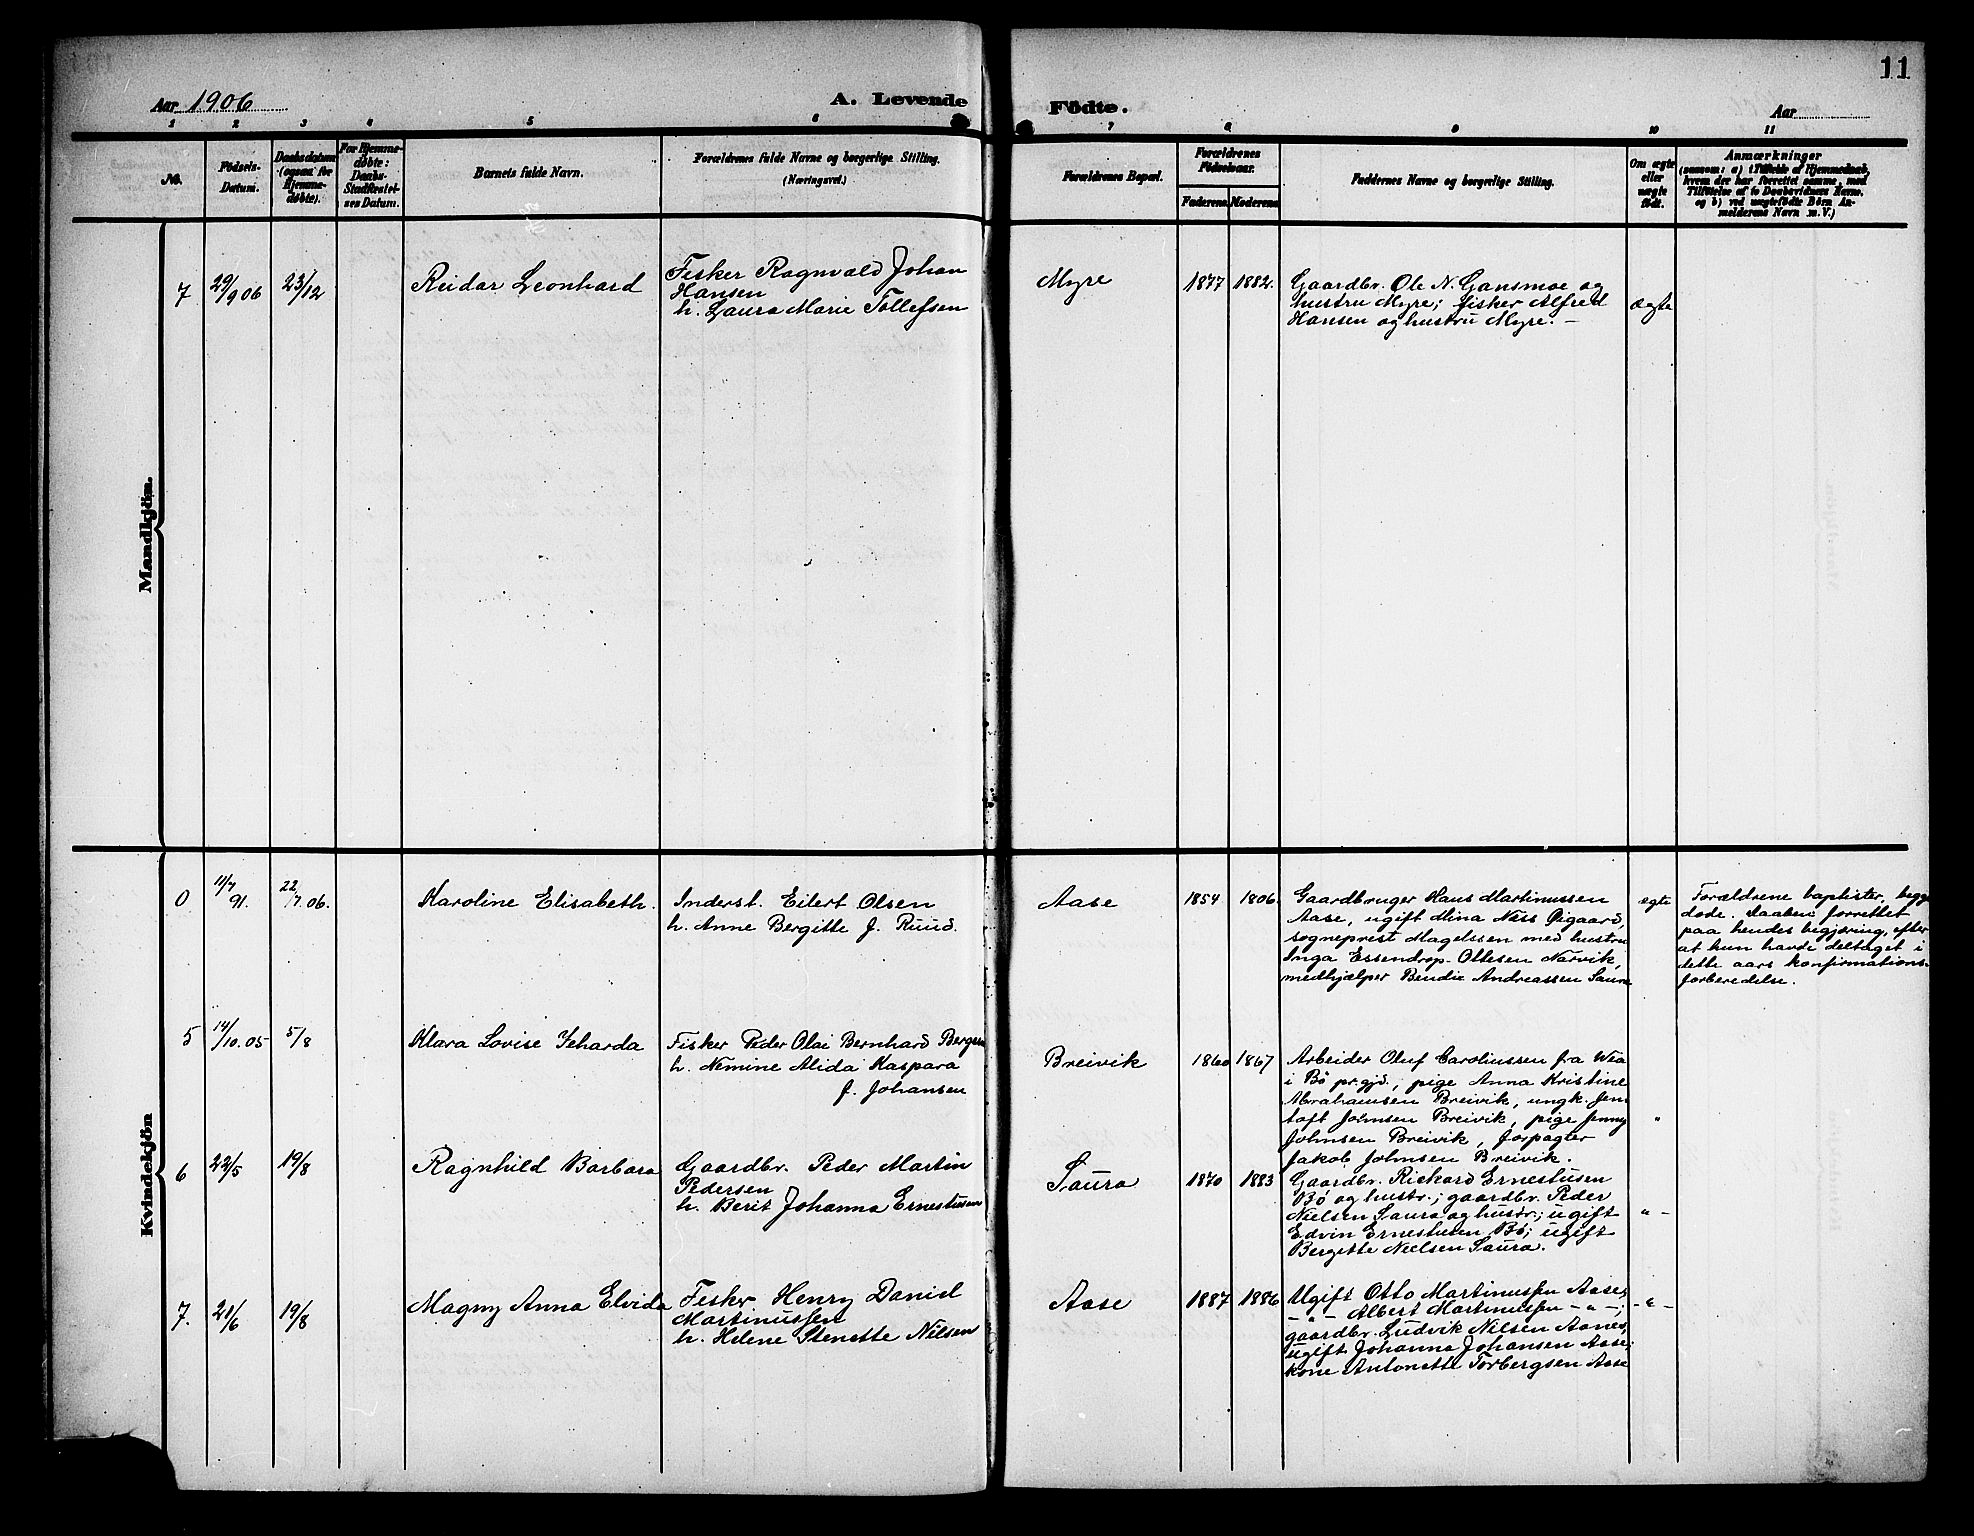 11
Aar 1906
A. Levende Födte.
Aar
1 2 3 4 5 6 7 8 9 10 11
No.
Födsels-
Datum.
Daabsdatum
(ogsaa for
Hjemme-
døbte).
For Hjemme-
døbte:
Daabs-
Stadfæstel-
ses Datum.
Barnets fulde Navn.
Forældrenes fulde Navne og borgerlige Stilling.
(Næringsvei.)
Forældrenes Bopæl.
Forældrenes
Födselsaar.
Faderens. Moderens.
Faddernes Navne og borgerlige Stilling.
Om ægte
eller
uægte
født.
Anmærkninger
(saasom: a) i Tilfælde af Hjemmedaab,
hvem der har forrettet samme, med
Tilföielse af to Daabsvidners Navne,
og b) ved uægtefödte Börn An-
melderens Navn m. V.)
Mandkjön.
7
29/9 06
23/12
Reidar Leonhard
Fisker Ragnvald Johan
Hansen
h. Laura Marie Tollefsen
Myre
1877
1882.
Gaardbr. Ole N. Gansmoe og
hustru Myre; fisker Alfred
Hansen og hustru Myre. –
ægte
Kvindekjön
0
11/7 91.
22/7 06.
Karoline Elisabeth.
Inderst. Eilert Olsen
h. Anne Bergitte f. Ruud.
Aase
1854
1806.
Gaardbruger Hans Martinussen
Aase, ugift Mina Næss Øigaard,
sogneprest Magelssen med hustru
Inga Essendrop. Ottesen Narvik,
medhjælper Bendix Andreassen Saura
egte
Forældrene baptister, begge
døde. Daaben forrettet
paa hendes begjæring, efter
at hun havde deltaget i
dette aars konfirmations-
forberedelse.
5
14/10.05
5/8
Klara Lovise Jeharda
Fisker Peder Olai Bernhard Bergsen
h. Nemine Alida Kaspara
f. Johansen
Breivik
1860
1867
Arbeider Oluf Caroliussen fra Wea
i Bø pr.gjd.; pige Anna Kristine
Abrahamsen Breivik, ungk. Jen
toft Johnsen Breivik, pige Jenny
Johnsen Breivik, forpagter
Jakob Johnsen Breivik.
"
6
22/5
19/8
Ragnhild Barbara
Gaardbr. Peder Martin
Pedersen
h. Berit Johanna Ernestussen
Saura
1870
1883
Gaardbr. Rickard Ernestusen
Bø og hustr.; gaardbr. Peder
Nielsen Saura og hustr.; ugift
Edvin Ernestusen Bø; ugift
Bergitte Nielsen Saura.
" –
7.
21/6
19/8
Magny Anna Elvida
Fisker Henry Daniel
Martinussen
h. Helene Stenette Nilsen
Aase
1887
1886
Ugift Otto Martinussen Aase;
– " – Albert Martinussen – " –;
gaardbr. Ludvik Nilsen Aanes,
ugift Johanna Johansen Aase;
kone Antonette Torbergsen Aase
– " –